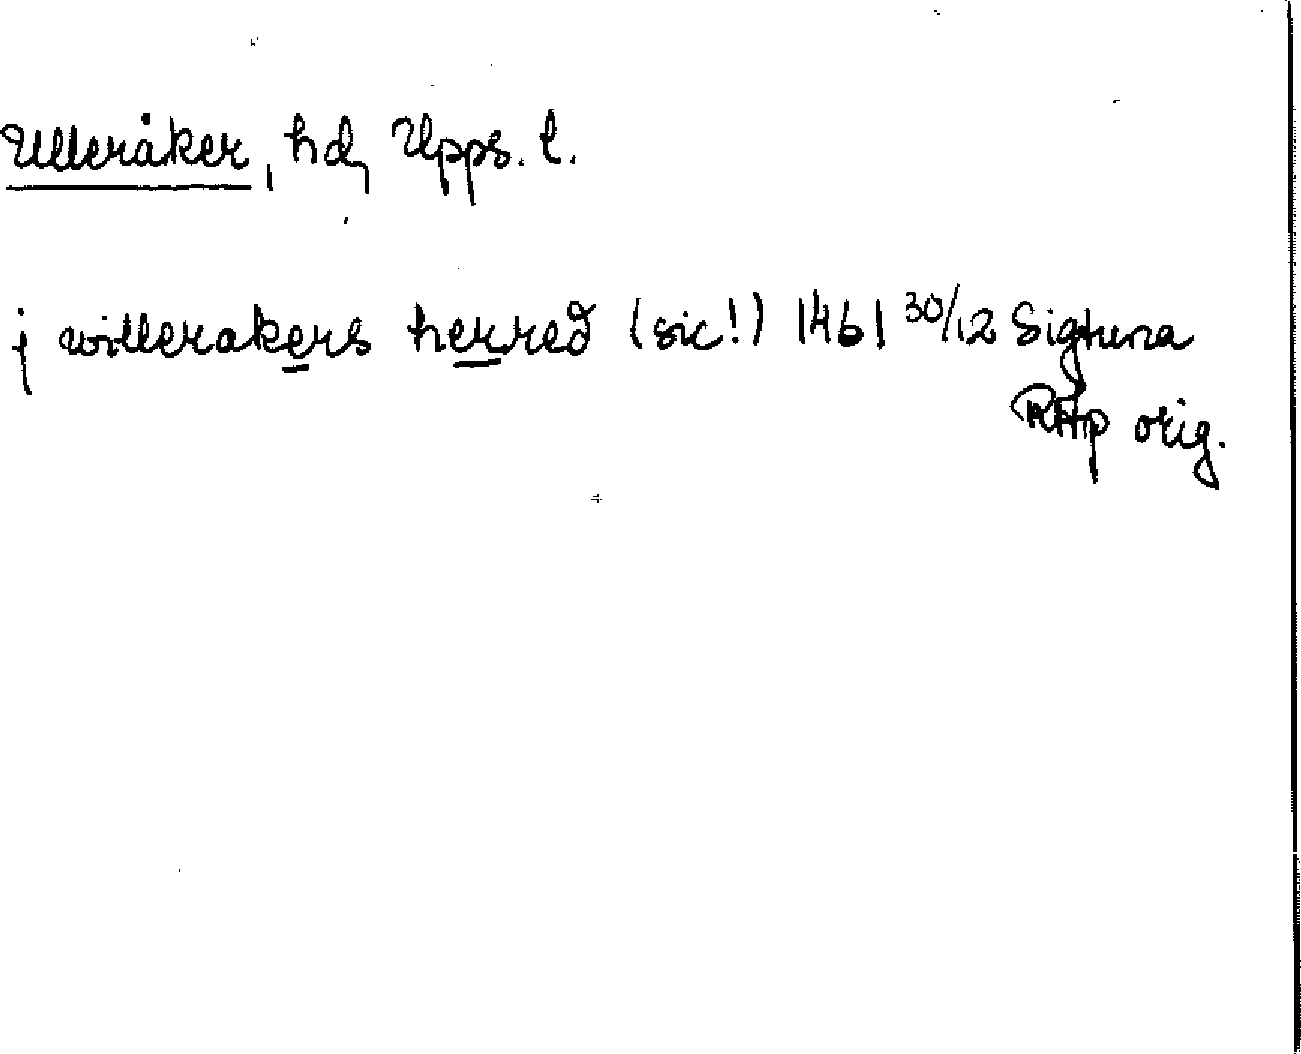 Ulleråker, hd, Upps. l.
j willerakers herred (sic!) 1461 30/12 Sigtuna
RAp orig.